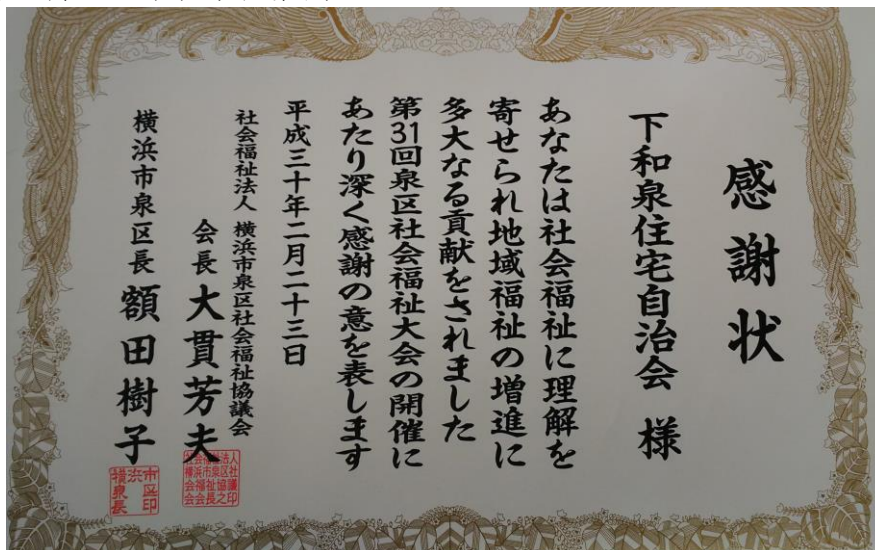 感謝状
下和泉住宅自治会 様
あなたは社会福祉に理解を
寄せられ地域福祉の増進に
多大なる貢献をされました
第31回泉区社会福祉大会の開催に
あたり深く感謝の意を表します
平成三十年二月二十三日
社会福祉法人 横浜市泉区社会福祉協議会
会長 大貫芳夫
横浜市泉区長 額田樹子
社会福祉法人
横浜市泉区社
会福祉協議
会会長之印
横浜市
泉区
長印